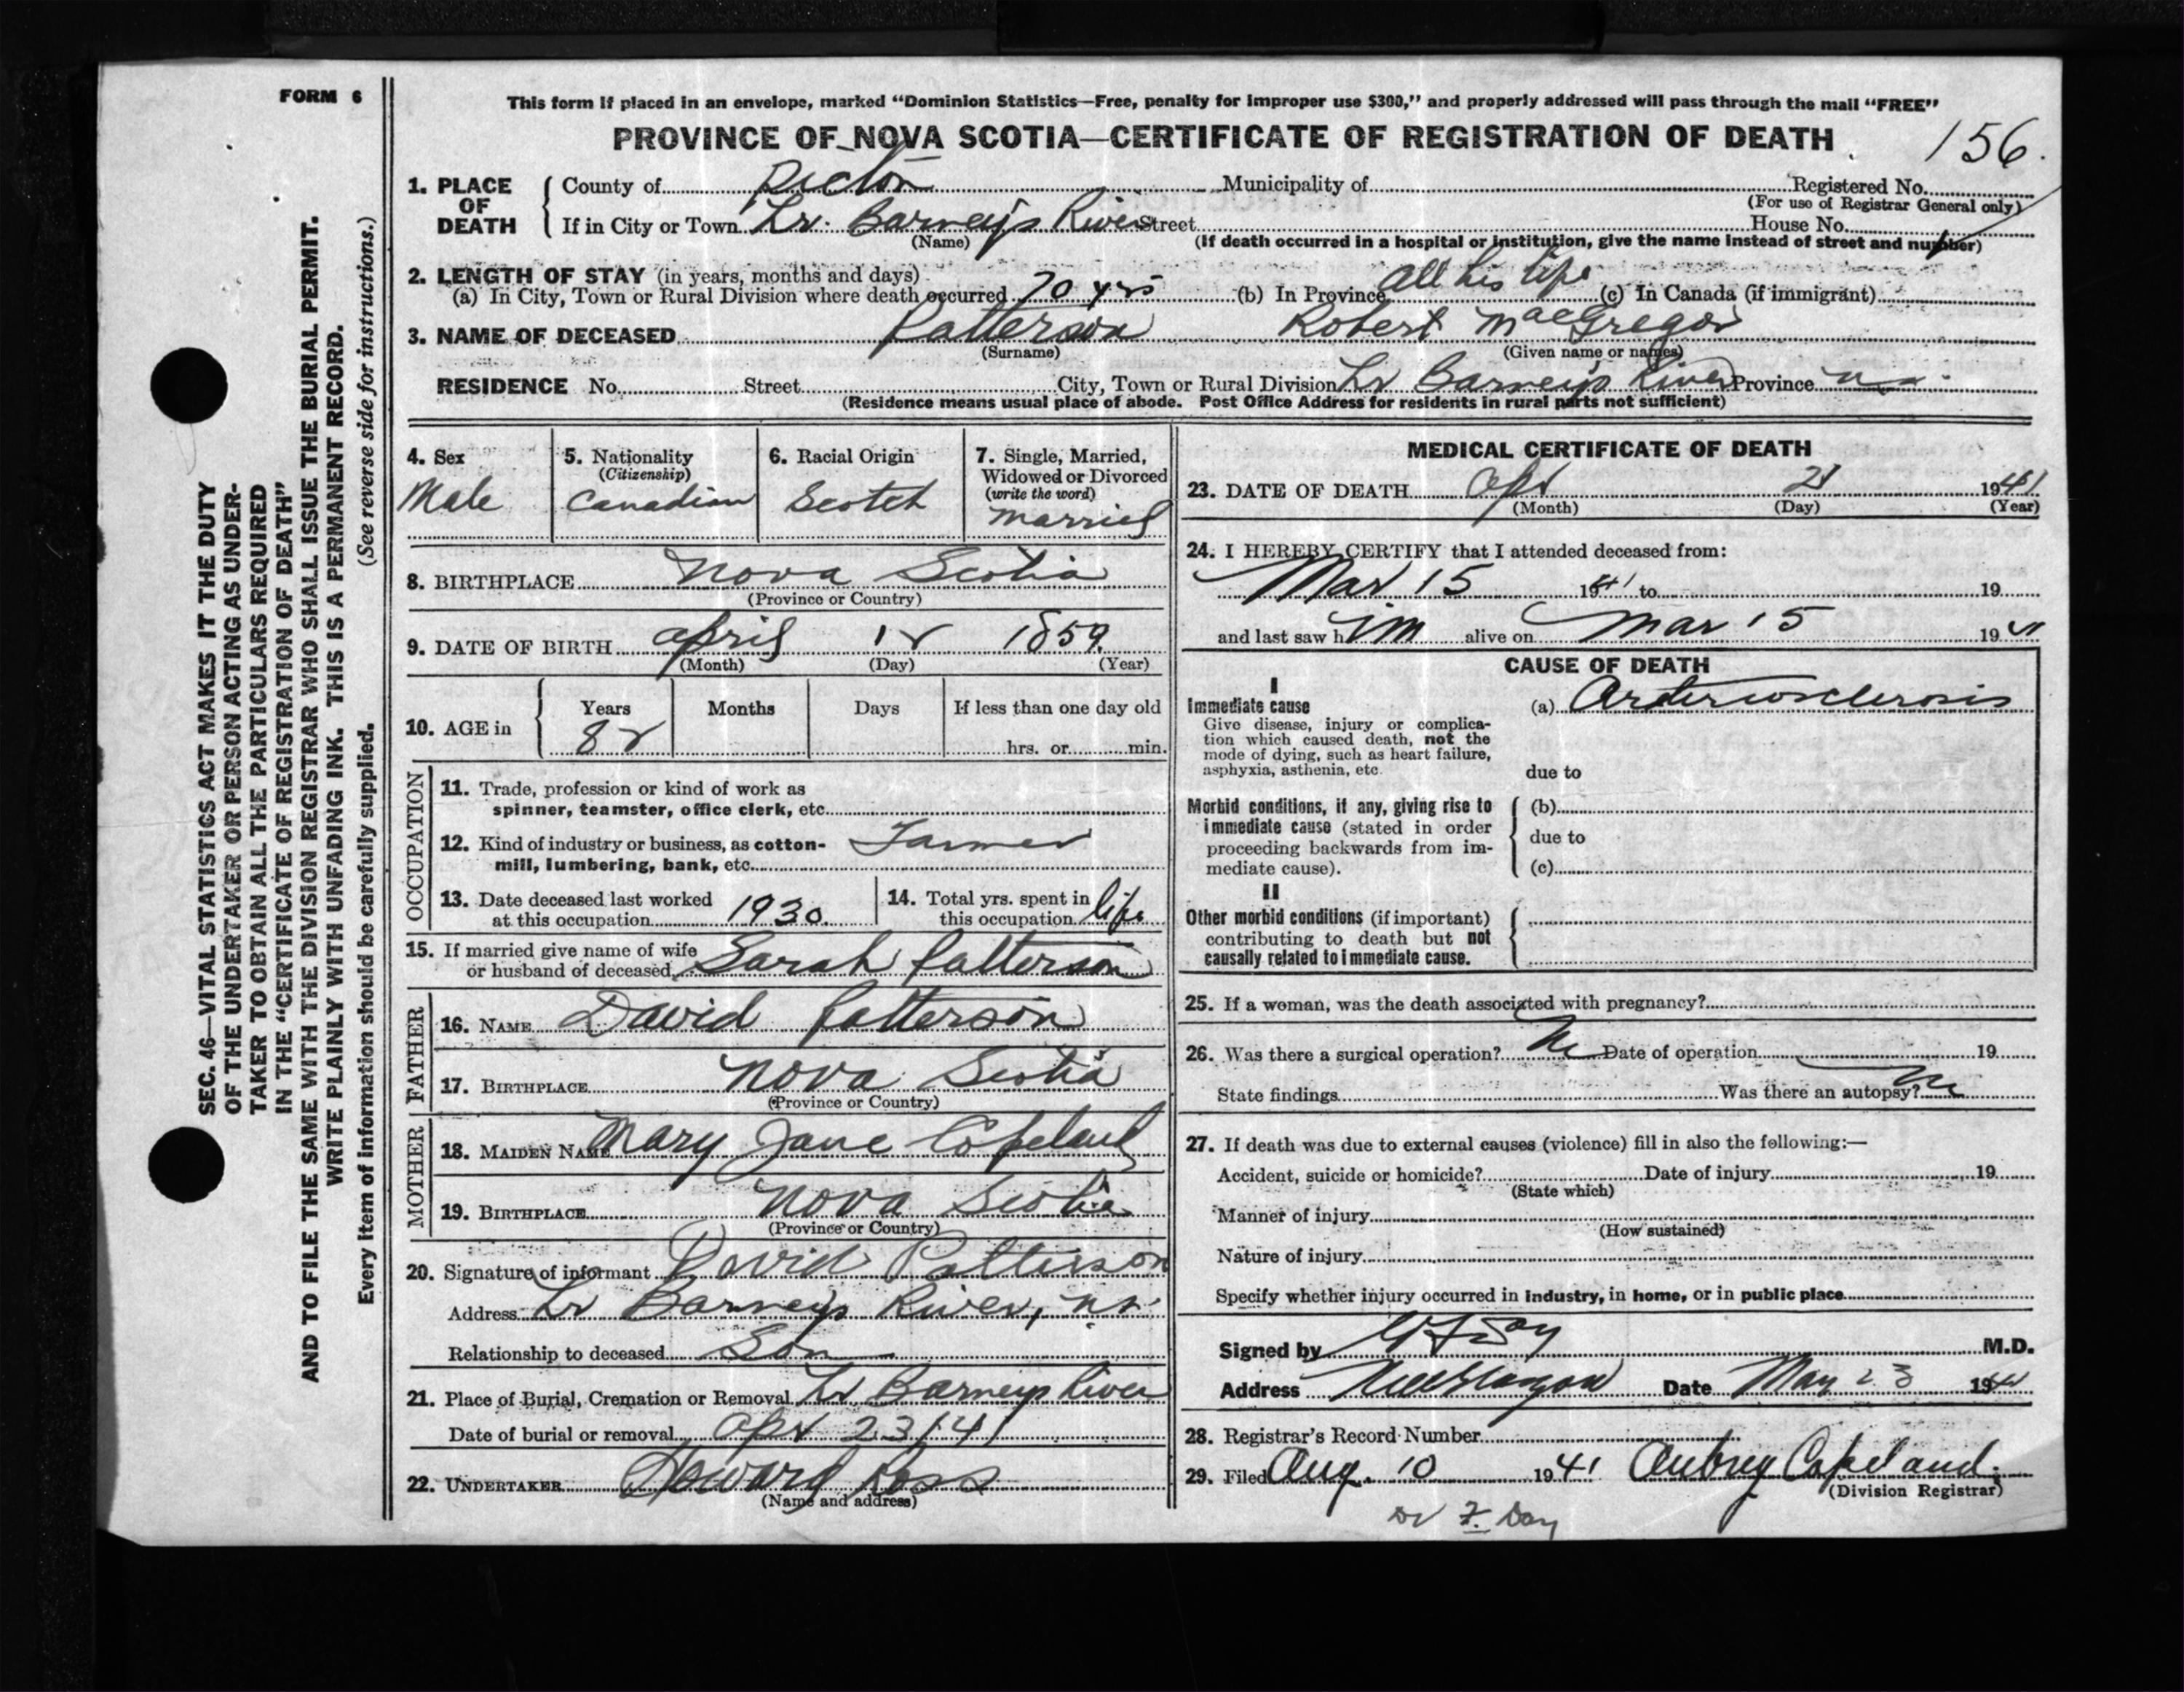 FORM 6
SEC. 46—VITAL STATISTICS ACT MAKES IT THE DUTY
OF THE UNDERTAKER OR PERSON ACTING AS UNDER-
TAKER TO OBTAIN ALL THE PARTICULARS REQUIRED
IN THE "CERTIFICATE OF REGISTRATION OF DEATH"
AND TO FILE THE SAME WITH THE DIVISION REGISTRAR WHO SHALL ISSUE THE BURIAL PERMIT.
WRITE PLAINLY WITH UNFADING INK. THIS IS A PERMANENT RECORD.
Every item of information should be carefully supplied. (See reverse side for instructions.)
This form if placed in an envelope, marked "Dominion Statistics—Free, penalty for improper use $300," and properly addressed will pass through the mail "FREE"
PROVINCE OF NOVA SCOTIA—CERTIFICATE OF REGISTRATION OF DEATH
156.
1. PLACE OF DEATH County of Pictou Municipality of Registered No.
(For use of Registrar General only)
If in City or Town Lr. Barneys River Street House No.
(Name) (If death occurred in a hospital or institution, give the name instead of street and number)
2. LENGTH OF STAY (in years, months and days)
(a) In City, Town or Rural Division where death occurred 70 yrs (b) In Province All his life (c) In Canada (if immigrant)
3. NAME OF DECEASED Patterson Robert MacGregor
(Surname) (Given name or names)
RESIDENCE No. Street City, Town or Rural Division Lr Barneys River Province N.S.
(Residence means usual place of abode. Post Office Address for residents in rural parts not sufficient)
4. Sex
Male
5. Nationality
(Citizenship)
Canadian
6. Racial Origin
Scotch
7. Single, Married,
Widowed or Divorced
(write the word)
Married
8. BIRTHPLACE Nova Scotia
(Province or Country)
9. DATE OF BIRTH April 12 1859.
(Month) (Day) (Year)
10. AGE in Years Months Days If less than one day old
82 hrs. or min.
OCCUPATION
11. Trade, profession or kind of work as
spinner, teamster, office clerk, etc.
12. Kind of industry or business, as cotton-
mill, lumbering, bank, etc. Farmer
13. Date deceased last worked
at this occupation 1930.
14. Total yrs. spent in
this occupation life
15. If married give name of wife
or husband of deceased Sarah Patterson
FATHER
16. NAME David Patterson
17. BIRTHPLACE Nova Scotia
(Province or Country)
MOTHER
18. MAIDEN NAME Mary Jane Copeland
19. BIRTHPLACE Nova Scotia
(Province or Country)
20. Signature of informant David Patterson
Address Lr Barneys River, N.S.
Relationship to deceased Son
21. Place of Burial, Cremation or Removal Lr Barneys River
Date of burial or removal Apr 23/41
22. UNDERTAKER Howard Ross
(Name and address)
MEDICAL CERTIFICATE OF DEATH
23. DATE OF DEATH Apr 21 1941
(Month) (Day) (Year)
24. I HEREBY CERTIFY that I attended deceased from:
Mar 15 1941 to 19
and last saw him alive on Mar 15 1941
CAUSE OF DEATH
I
Immediate cause
Give disease, injury or complica-
tion which caused death, not the
mode of dying, such as heart failure,
asphyxia, asthenia, etc.
(a) Arteriosclerosis
due to
Morbid conditions, if any, giving rise to
immediate cause (stated in order
proceeding backwards from im-
mediate cause).
(b)
due to
(c)
II
Other morbid conditions (if important)
contributing to death but not
causally related to immediate cause.
25. If a woman, was the death associated with pregnancy?
26. Was there a surgical operation? No Date of operation 19
State findings Was there an autopsy? No
27. If death was due to external causes (violence) fill in also the following:—
Accident, suicide or homicide? Date of injury 19
(State which)
Manner of injury
(How sustained)
Nature of injury
Specify whether injury occurred in industry, in home, or in public place
Signed by Day M.D.
Address New Glasgow Date May 23 1941
28. Registrar's Record Number
29. Filed Aug. 10 1941 Aubrey Copeland.
(Division Registrar)
Dr F. Day